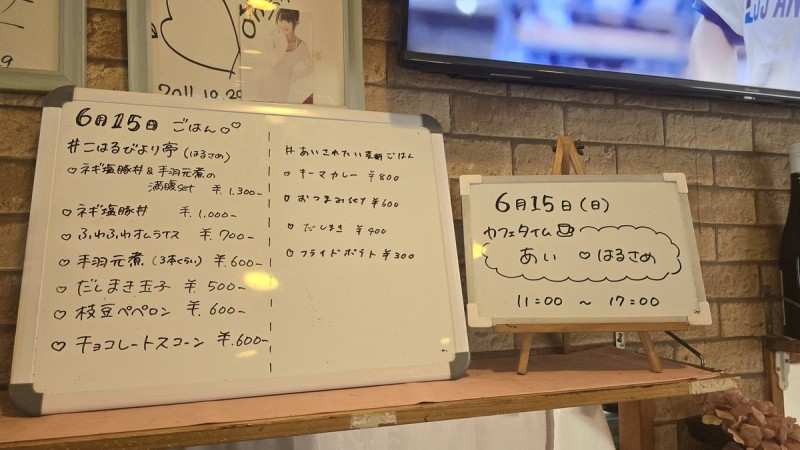 2011.10.29
6月15日 ごはん♡♡
#こはるびより亭(はるさめ)
♡ネギ塩豚丼&手羽元煮の
満腹set ¥.1,300-
♡ネギ塩豚丼 ¥.1,000-
♡ふわふわオムライス ¥.700-
♡手羽元煮(3本くらい) ¥.600-
♡だしまき玉子 ¥.500-
♡枝豆ペペロン ¥.600-
♡チョコレートスコーン ¥.600-
#あいされたい ごはん
♡キーマカレー ¥800
♡おつまみset ¥600
♡だしまき ¥400
♡フライドポテト ¥300
6月15日(日)
カフェタイム
あい ♡はるさめ
11:00 ~ 17:00